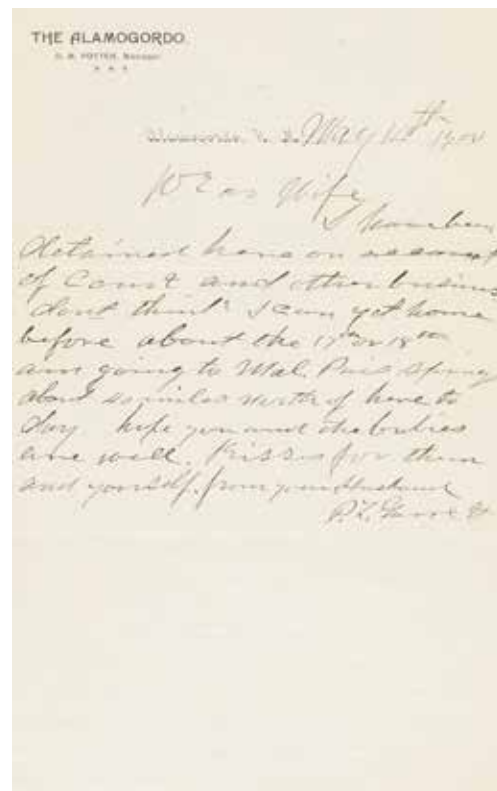 THE ALAMOGORDO.
POTTER, Manager
May 14th
Dear Wife
I have been
detained here on account
of Court and other business
dont think I can get home
before about the 17th or 18th
am going to Mal. Pais spring
about miles north of here to
day. hope you and the babies
are well. Kisses for them
and yourself. from your Husband
P.F. Garrett